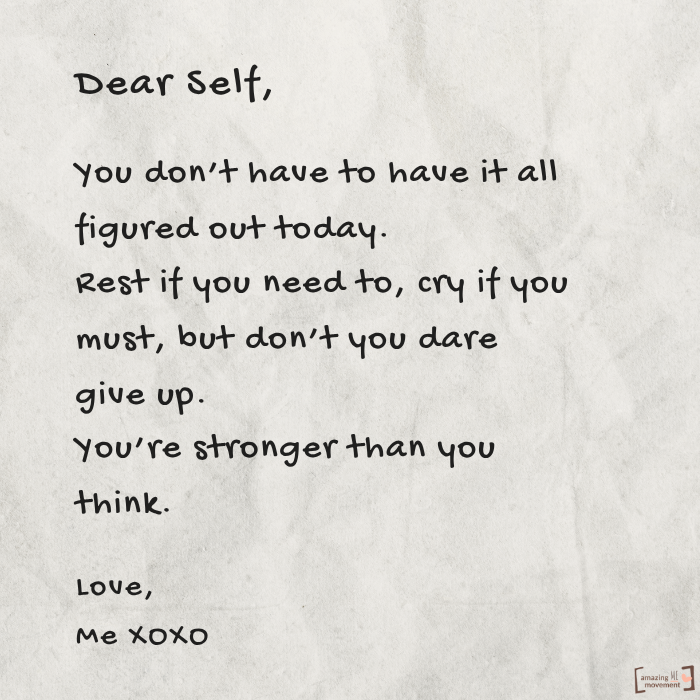 Dear Self,
You don't have to have it all
figured out today.
Rest if you need to, cry if you
must, but don't you dare
give up.
You're stronger than you
think.
Love,
Me XOXO
amazing ME
movement